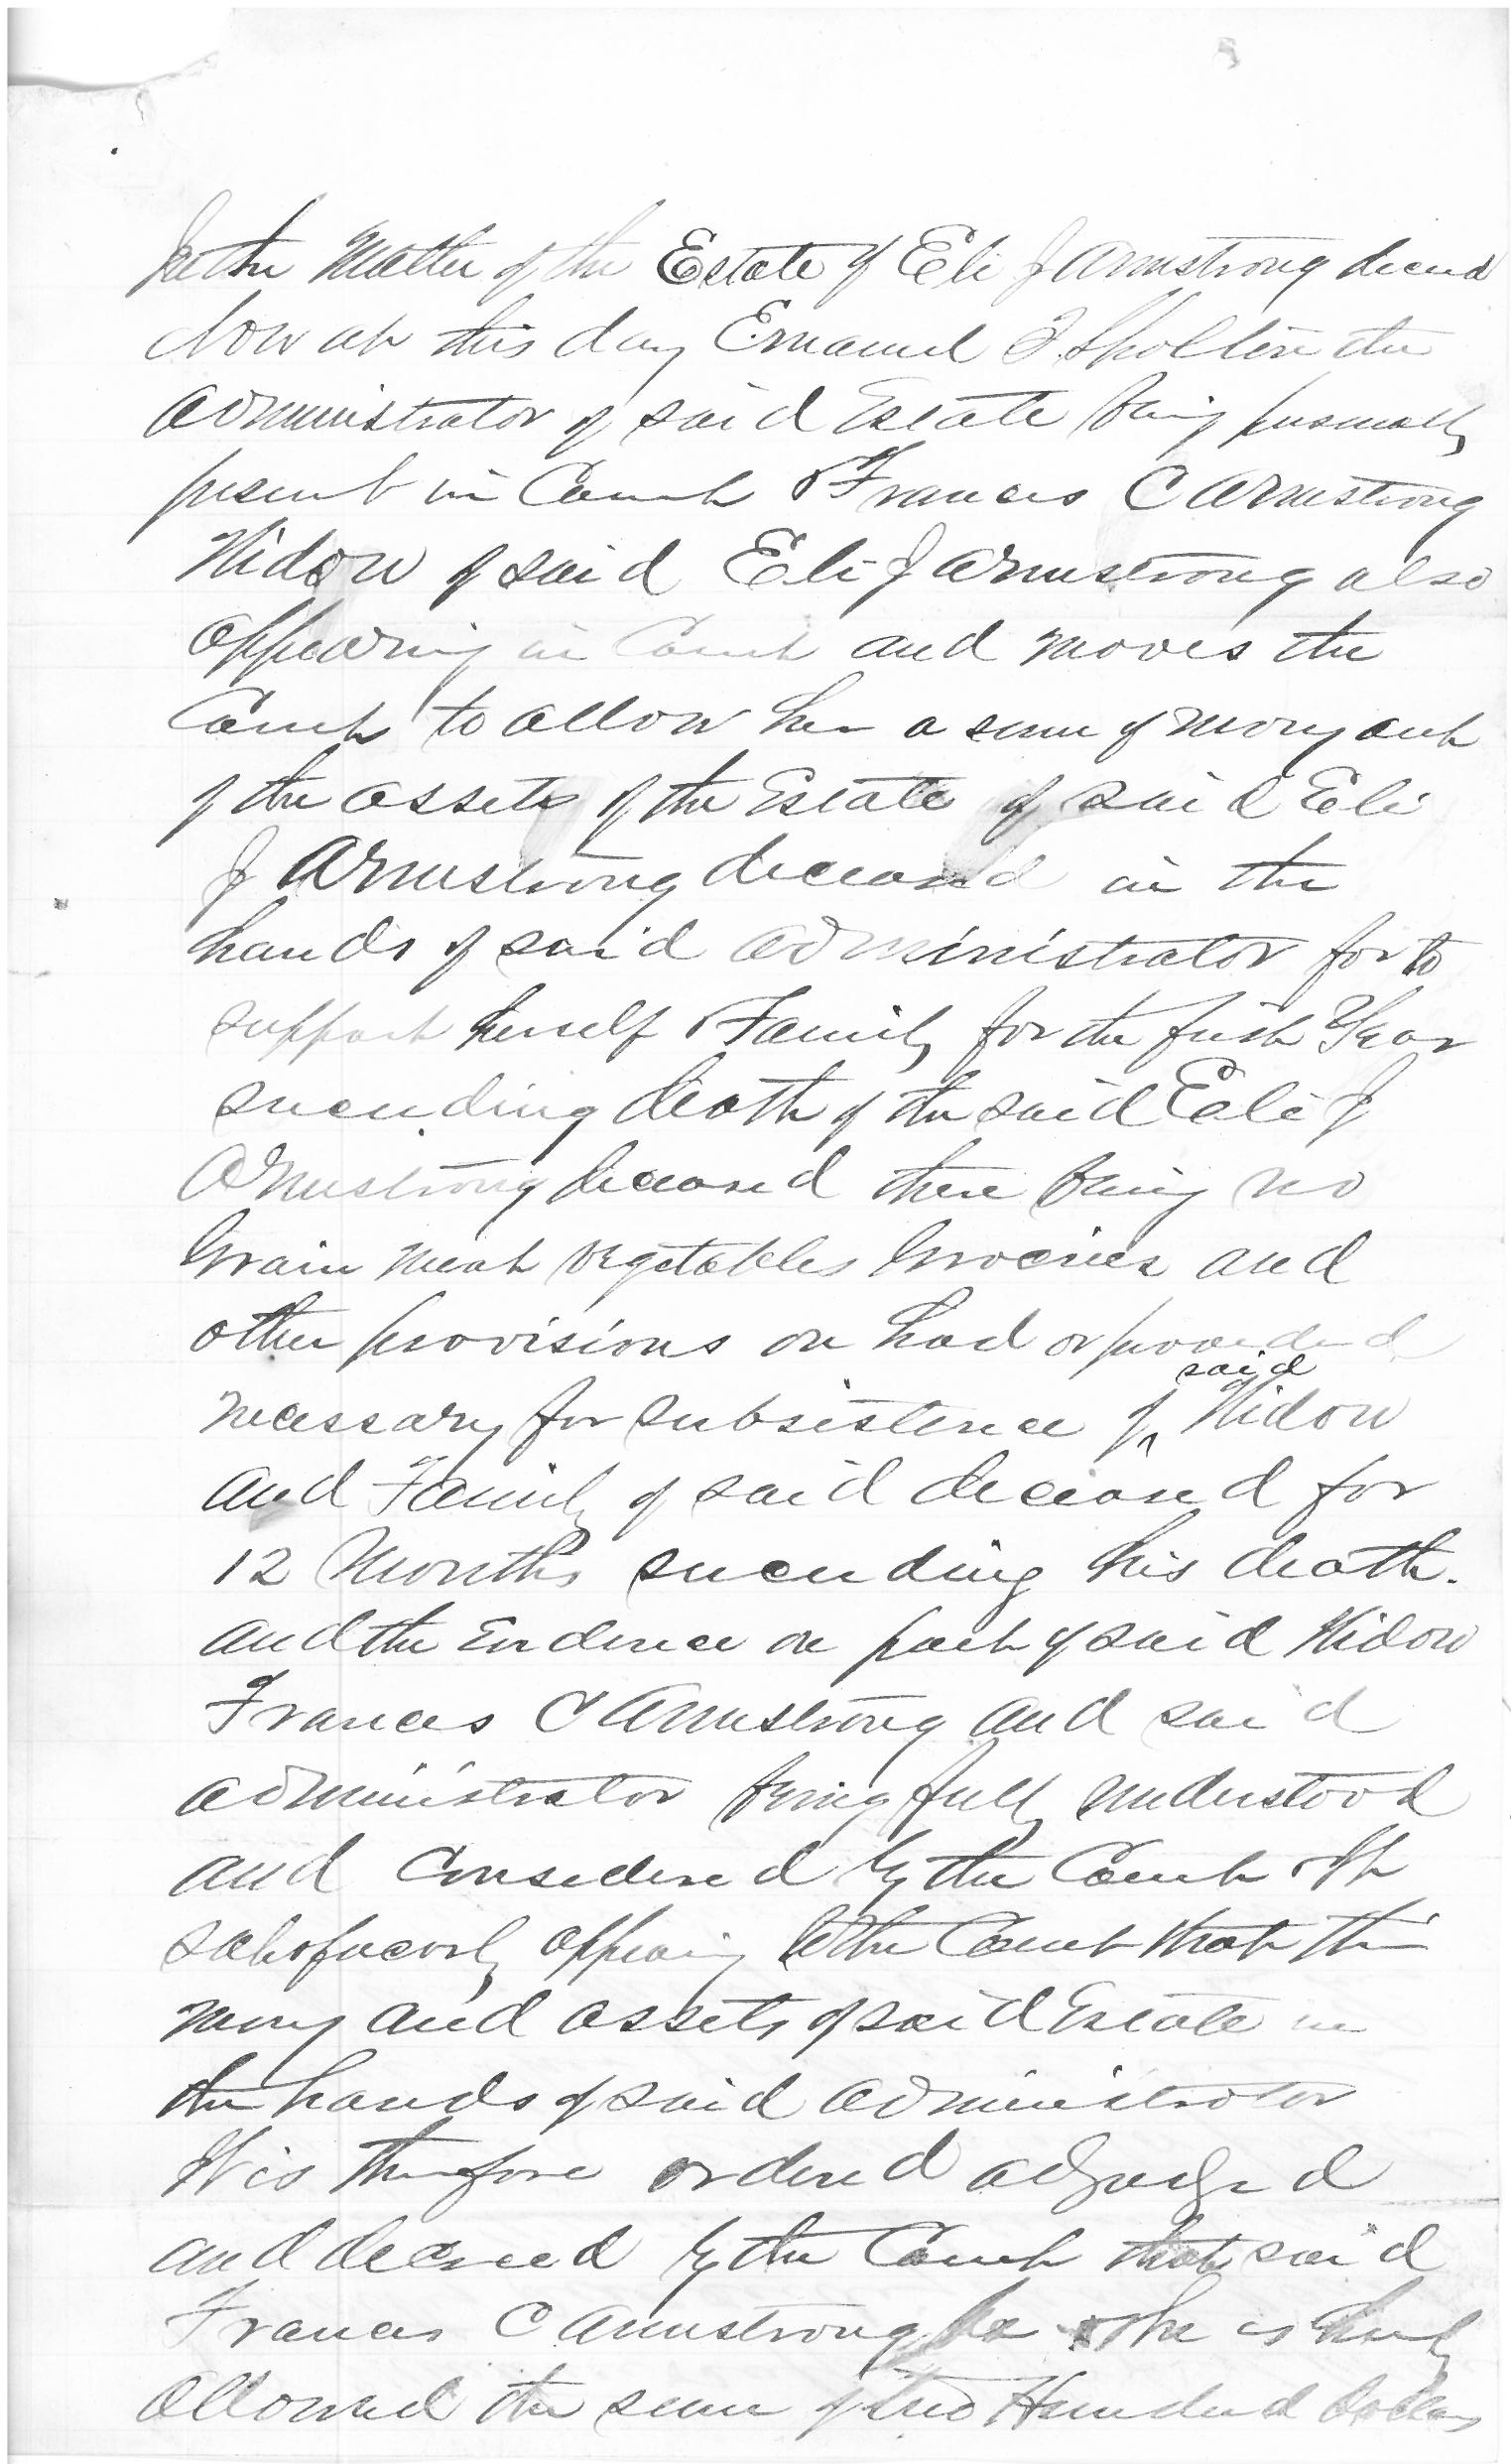 In the Matter of the Estate of Eli J Armstrong deceased
Now at this day Emanuel the
Administrator of said Estate being personally
present in Court & Frances C Armstrong
Widow of said Eli J Armstrong also
appearing in Court and moves the
Court to allow her a sum of money out
of the assets of the Estate of said Eli
J Armstrong deceased in the
hands of said Administrator for to
support herself & Family for the first Year
succeeding death of the said Eli J
Armstrong deceased there being no
Grain meat vegetables Groceries and
other provisions on had or provided
necessary for subsistence of said Widow
and Family of said deceased for
12 Months succeeding his death.
and the Evidence on part of said Widow
Frances C Armstrong and said
administrator being fully understood
and Considered by the Court & It
satisfactorily appearing to the Court that the
money and assets of said Estate in
the hands of said administrator
It is therefore ordered adjudged
and decreed by the Court that said
Frances C Armstrong be & She is hereby
allowed the sum of two Hundred dollars